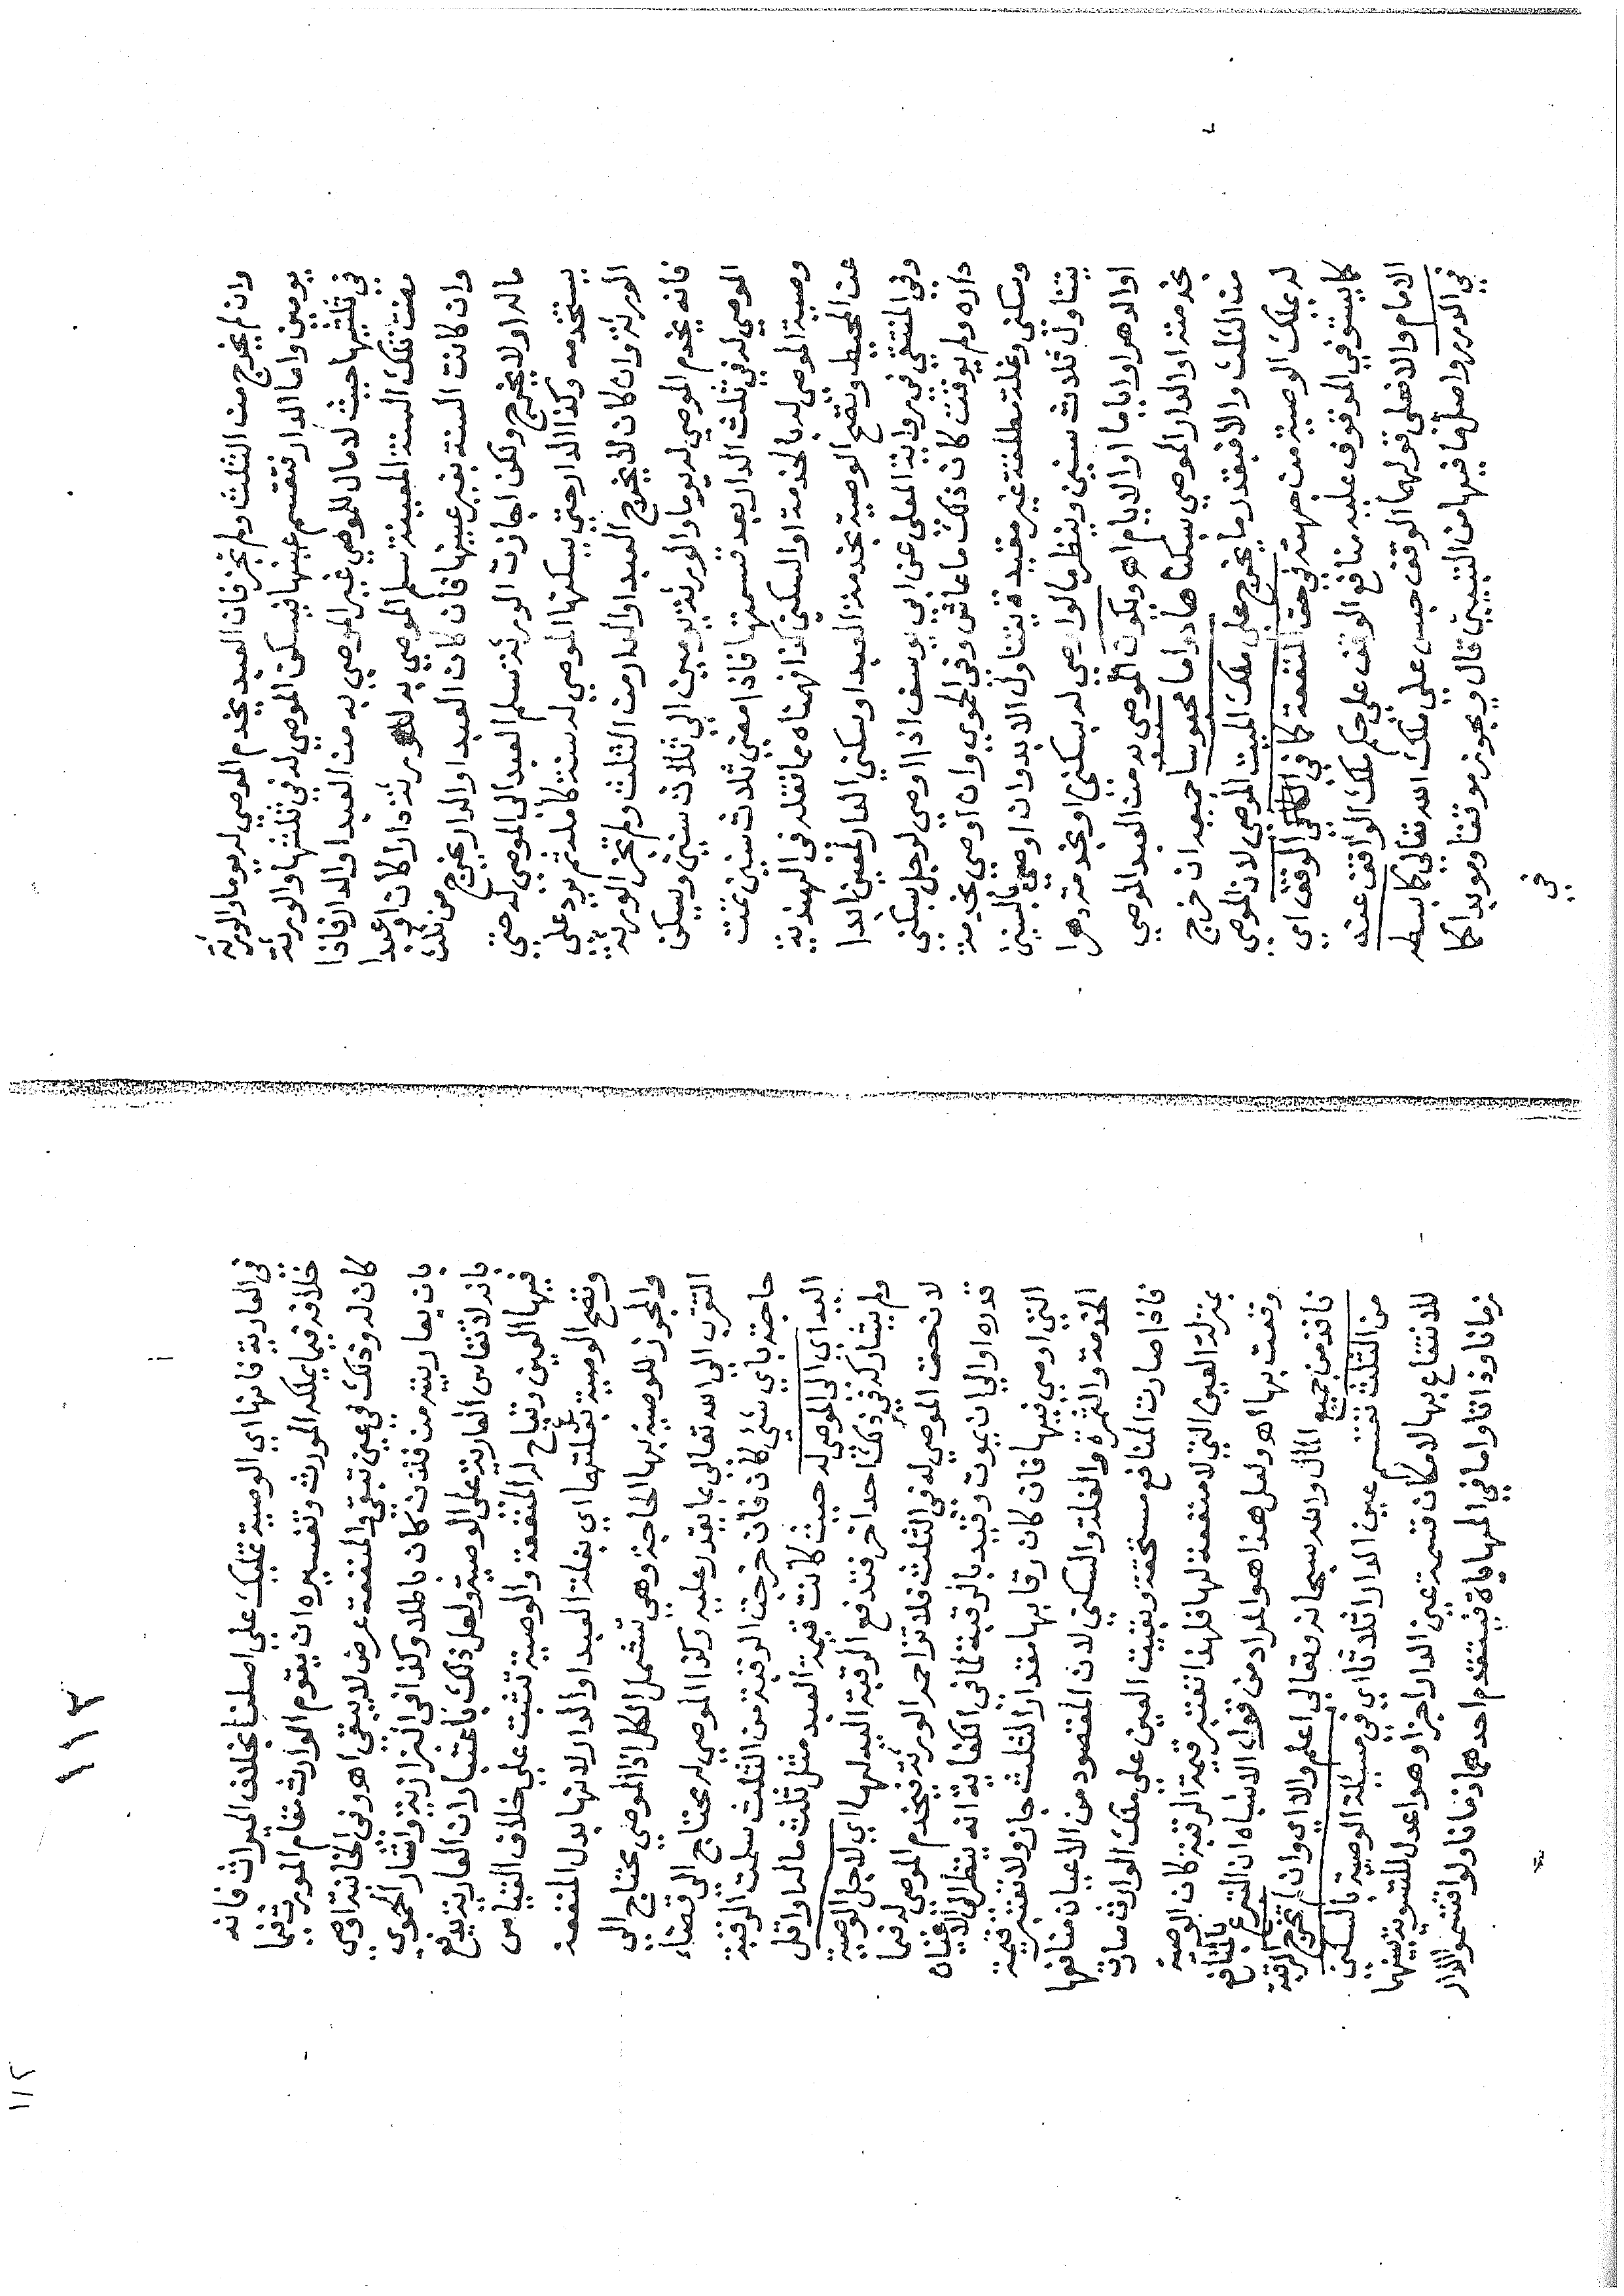 وان لم يخرج من الثلث ولم تجز فان العبد يخدم الموصي له يوما والورثة
يومين واما الدار فتقسم عينها فيسكن الموصي له في ثلثها والورثة
في ثلثيها حيث لا مال للموصي غير الموصي به من العبد او الدار فاذا
مضت تلك السنة المعينة تسلم الموصي به للورثة دارا كان او عبدا
وان كانت السنة بغير عينها فان كان العبد او الدار يخرج من ثلث
ماله او لا يخرج ولكن اجازت الورثة تسلم العبد الى الموصي له حتي
يستخدمه وكذا الدار حتي يسكنها الموصي له سنة كاملة ثم يرد على
الورثة وان كان لا يخرج العبد او الدار من الثلث ولم تجز الورثة
فانه يخدم الموصي له يوما والورثة يومين الى ثلاث سنين ويسكن
الموصي له في ثلث الدار بعد قسمتها فاذا مضي ثلاث سنين تمت
وصية الموصي له بالخدمة او السكني كذا فهمناه مما نقله في الهندية
عن المحيط وتصح الوصية بخدمة العبد او سكني الدار لمعين ابدا
وفي المنتقي في رواية المعلى عن ابي يوسف اذا اوصي لرجل بسكني
داره ولم يوقت كان ذلك ما عاش وفي الحموي وان اوصي بخدمة
وسكني وغلة مطلقة غير مقيدة يتناول الابد وان اوصي بالسنين
يتناول ثلاث سنين وينظر ما لو اوصي له بسكني او بخدمة دهرا
او الدهر او اياما او الايام اهـ ويكون الموصي به من العبد الموصي
بخدمته او الدار الموصي بسكناها دواما محبوسا جميعه ان خرج
من الثلث والا فبقدر ما يخرج على ملك الميت الموصي لان الموصي
له يملك الوصية من جهته في حق المنفعة كما في الوقف اي
كما يستوفي الموقوف عليه منافع الوقف على حكم ملك الواقف عنده
الامام والا فعلى قولهما الوقف حبس على ملك الله تعالي كما بسطه
في الدرر واصلها فيها من التبيين قال ويجوز موقتا ومؤبدا كما
في
١١٣
١١٢
في العارية فانها اي الوصية تمليك على اصلنا بخلاف الميراث فانه
خلافة فيما يملكه المورث وتفسيره ان يقوم الوارث مقام المورث فيما
كان له وذلك في عين تبقى والمنفعة عرض لا يبقى اهـ وفي الخانية اوصي
بان يعار بيته من فلان كان باطلا وكذا في البزازية واشار الحموي
بانه لا تقاس العارية على الوصية ولعل ذلك باعتبار ان العارية تدفع
فيها العين وتباح له المنفعة والوصية تثبت على خلاف القياس
وتصح الوصية بغلتهما اي بغلة العبد او الدار لانها بدل المنفعة
والمجوز للوصية بها الحاجة وهي تشمل الكل اذ الموصي يحتاج الى
التقرب الى الله تعالي بما يقدر عليه وكذا الموصي له يحتاج الى قضاء
حاجته باي شئ كان فان خرجت الرقبة من الثلث سلمت الرقبة
اليه اي الى الموصي له حيث كانت قيمة العبد مثل ثلث ماله او اقل
ولم يشاركه في ذلك احد اخر فتدفع الرقبة اليه لها اي لاجل الوصية
لان حق الموصي له في الثلث فلا تزاحمه الورثة فيخدم الموصي له فيما
قدره او الى ان يموت وقيد بالرقبة لما في الكفاية انه ينظر الى الاعيان
التي اوصي فيها فان كان رقابها مقدار الثلث جاز ولا تعتبر قيمة
الخدمة والثمرة والغلة والسكني لان المقصود من الاعيان منافعها
فاذا صارت المنافع مستحقة وبقيت العين على ملك الوارث صارت
بمنزلة العين التي لا منفعة لها فلهذا تعتبر قيمة الرقبة كان الوصية
وقعت بها اهـ ولعل هذا هو المراد من قول الاشباه ان التبرع بالمنافع
نافذ من جميع المال والله سبحانه وتعالى اعلم والا اي وان لم تخرج الرقبة
من الثلث تقسم عين الدار اثلاثا اي في مسئلة الوصية بالسكني
للانتفاع بها لامكان قسمة عين الدار اجزا وهو اعدل للتسوية بينهما
زمانا وذاتا واما في المهاياة فيتقدم احدهما زمانا ولو اقتسموا الدار